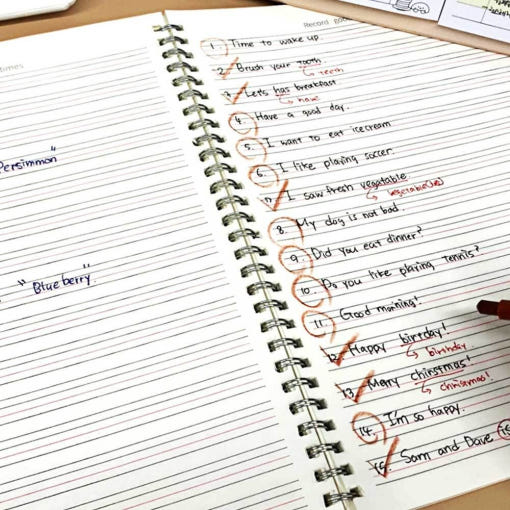 Persimmon"
"Blueberry."
Record
1. Time to wake up.
2. Brush your tooth.
teeth
3. Let's has breakfast
have
4. Have a good day.
5. I want to eat icecream
6. I like playing soccer.
7. I saw fresh vegetable.
8. My dog is not bad.
9. Did you eat dinner?
10. Do you like playing tennis?
11. Good morning!
12. Happy birtday!
birthday
13. Merry chirstmas!
christmas!
14. I'm so happy.
15. Sam and Dave is